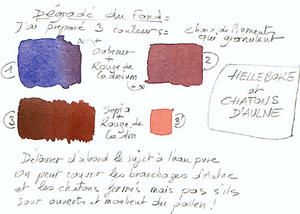 Dégradé du fond =
J'ai préparé 3 couleurs =
qui granulent
1
+
Outremer
+
Rouge de
Cadmium
2
HELLEBORE
et
CHATONS
D'AULNE
3
Sepia
+
Rouge de
Cadm
3'
Détourer d'abord le sujet à l'eau pure
On peut couvrir les branchages d'Aulne
et les chatons fermés mais pas s'ils
sont ouverts et montrent du pollen !